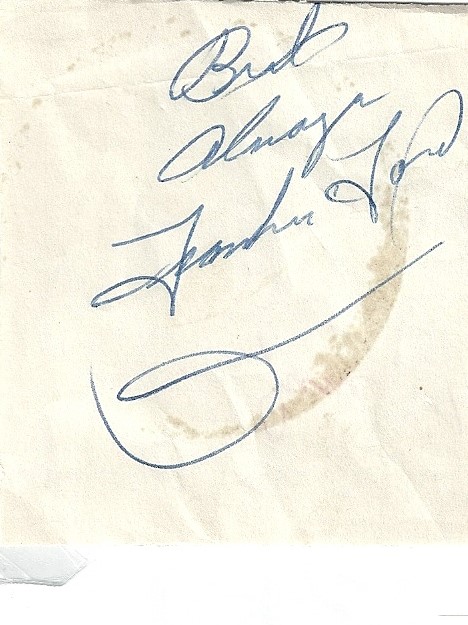 Best
Always
Frankie Ford